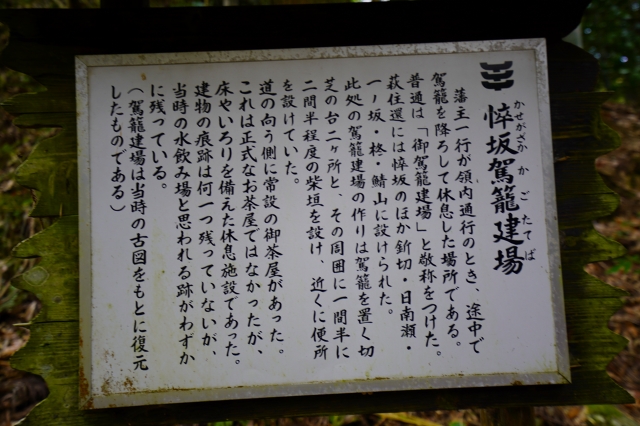 悴坂駕籠建場
かせがざかかごたてば
藩主一行が領内通行のとき、途中で
駕籠を降ろして休息した場所である。
普通は「御駕籠建場」と敬称をつけた。
萩往還には悴坂のほか釿切・日南瀬・
一ノ坂・柊・鯖山に設けられた。
此処の駕籠建場の作りは駕籠を置く切
芝の台二ヶ所と、その周囲に一間半に
二間半程度の柴垣を設け 近くに便所
を設けていた。
道の向う側に常設の御茶屋があった。
これは正式なお茶屋ではなかったが、
床やいろりを備えた休息施設であった。
建物の痕跡は何一つ残っていないが、
当時の水飲み場と思われる跡がわずか
に残っている。
（駕籠建場は当時の古図をもとに復元
したものである）